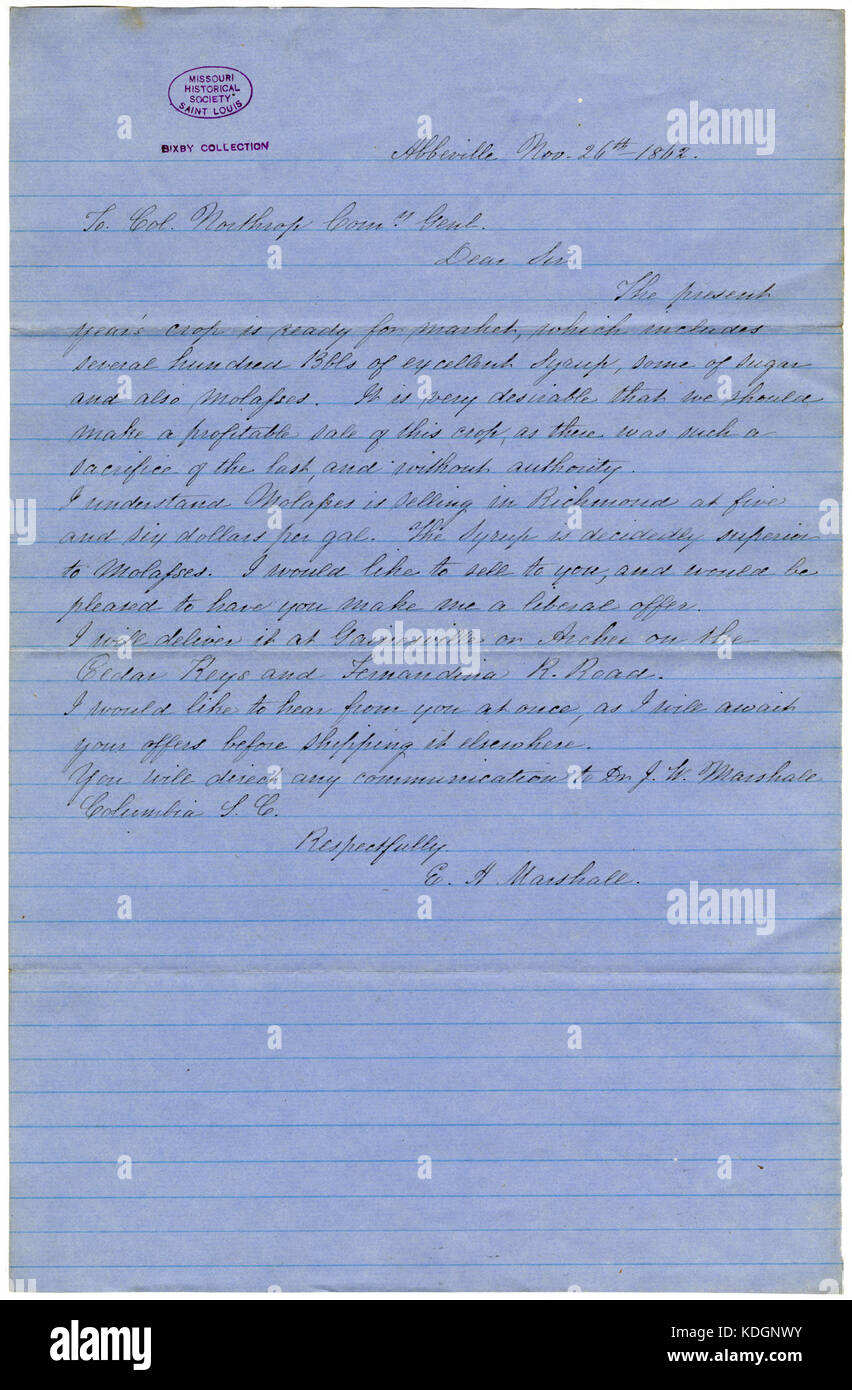 MISSOURI
HISTORICAL
SOCIETY
SAINT LOUIS
BIXBY COLLECTION
Abbeville Nov. 26th 1862.
To Col. Northrop Comy Genl.
Dear Sir
The present
year's crop is ready for market, which includes
several hundred Bbls of excellent Syrup, some of sugar
and also Molasses. It is very desirable that we should
make a profitable sale of this crop, as there was such a
sacrifice of the last, and without authority.
I understand Molasses is selling in Richmond at five
and six dollars per gal. The Syrup is decidedly superior
to Molasses. I would like to sell to you, and would be
pleased to have you make me a liberal offer.
I will deliver it at Gainesville or Archer on the
Cedar Keys and Fernandina R. Road.
I would like to hear from you at once, as I will await
your offers before shipping it elsewhere.
You will direct any communication to Dr J. W. Marshall
Columbia S. C.
Respectfully
E. A Marshall.
a
alamy
alamy
Image ID: KDGNWY
www.alamy.com